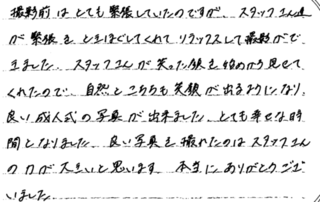 撮影前はとても緊張していたのですが、スタッフさん達
が緊張をときほぐしてくれてリラックスして撮影がで
きました。スタッフさんが笑った顔を始めから見せて
くれたので、自然とこちらも笑顔が出るようになり、
良い成人式の写真が出来ました。とても幸せな時
間となりました。良い写真を撮れたのはスタッフさん
の力が大きいと思います。本当にありがとうござ
いました。